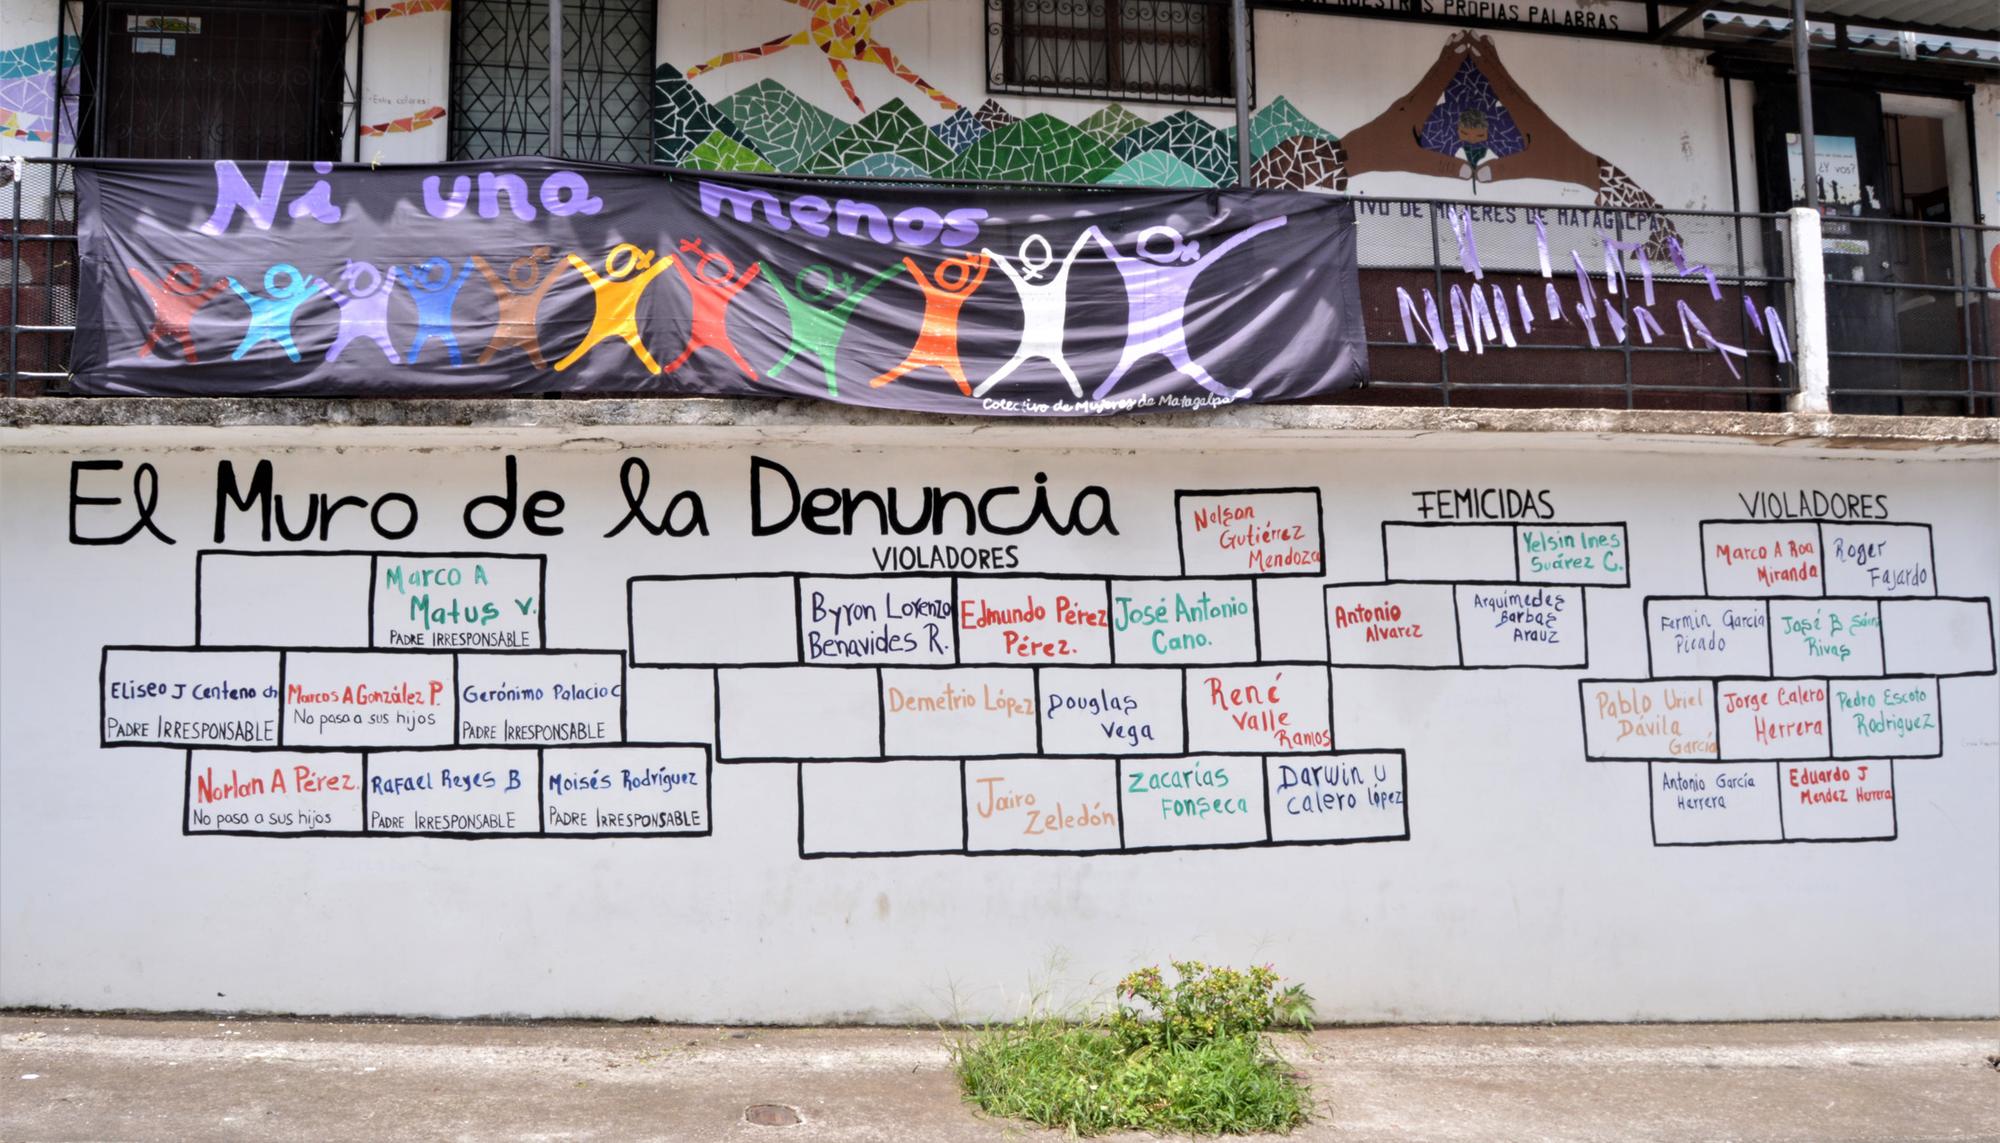 NUESTROS PROPIAS PALABRAS
Entre colores
¿Y vos?
DE MUJERES DE MATAGALPA
Ni una menos
Colectivo de Mujeres de Matagalpa
El Muro de la Denuncia
Marco A
Matus V.
PADRE IRRESPONSABLE
Eliseo J Centeno ch
PADRE IRRESPONSABLE
Marcos A González P.
No pasa a sus hijos
Gerónimo Palacio C
PADRE IRRESPONSABLE
Norlan A Pérez.
No pasa a sus hijos
Rafael Reyes B
PADRE IRRESPONSABLE
Moisés Rodríguez
PADRE IRRESPONSABLE
VIOLADORES
Nelson
Gutiérrez
Mendoza
Byron Lorenzo
Benavides R.
Edmundo Pérez
Pérez.
José Antonio
Cano.
Demetrio López
Douglas
Vega
René
Valle
Ramos
Jairo
Zeledón
Zacarías
Fonseca
Darwin U
Calero López
FEMICIDAS
Yelsin Ines
Suárez C.
Antonio
Alvarez
Arquímedes
Barbas
Arauz
VIOLADORES
Marco A Roa
Miranda
Roger
Fajardo
Fermin García
Picado
José B
Rivas
Pablo Uriel
Dávila
García
Jorge Calero
Herrera
Pedro Escoto
Rodriguez
Antonio García
Herrera
Eduardo J
Mendez Herrera